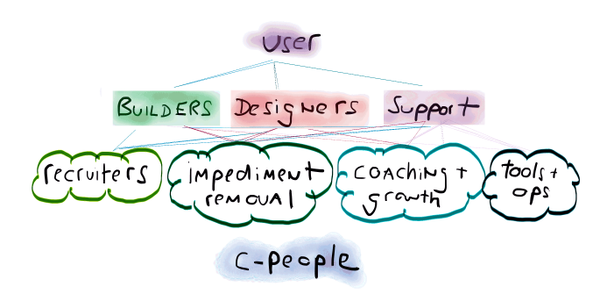 User
BUILDERS DESIGNERS Support
recruiters impediment removal coaching + growth tools + ops
C-people